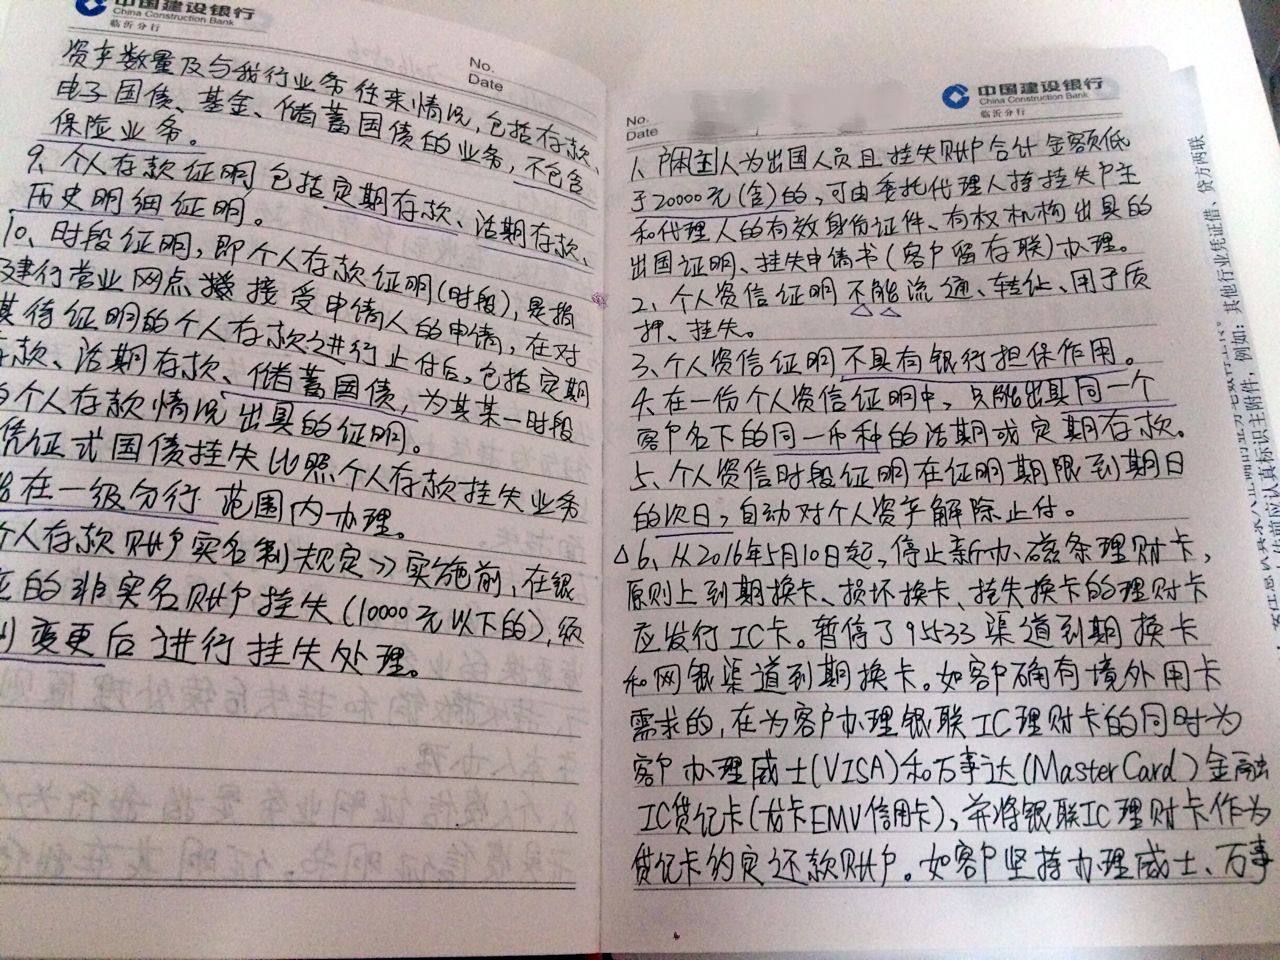 中国建设银行
China Construction Bank
临沂分行
No.
Date
资产数量及与我行业务往来情况,包括存款、
电子国债、基金、储蓄国债的业务,不包含
保险业务。
9、个人存款证明包括定期存款、活期存款、
历史明细证明。
10、时段证明,即个人存款证明(时段),是指
建行营业网点接受申请人的申请,在对
其待证明的个人存款进行止付后,包括定期
存款、活期存款、储蓄国债,为其某一时段
个人存款情况出具的证明。
凭证式国债挂失比照个人存款挂失业务
在一级分行范围内办理。
个人存款账户实名制规定》实施前,在银
的非实名账户挂失(10000元以下的),须
变更后进行挂失处理。
中国建设银行
China Construction Bank
临沂分行
No.
Date
1、户主人为出国人员且挂失账户合计金额低
于20000元(含)的,可由委托代理人持挂失户主
和代理人的有效身份证件、有权机构出具的
出国证明、挂失申请书(客户留存联)办理。
2、个人资信证明不能流通、转让、用于质
押、挂失。
3、个人资信证明不具有银行担保作用。
4、在一份个人资信证明中,只能出具同一个
客户名下的同一币种的活期或定期存款。
5、个人资信时段证明在证明期限到期日
的次日,自动对个人资产解除止付。
△6、从2016年5月10日起,停止新办磁条理财卡,
原则上到期换卡、损坏换卡、挂失换卡的理财卡
应发行IC卡。暂停了95533渠道到期换卡
和网银渠道到期换卡。如客户确有境外用卡
需求的,在为客户办理银联IC理财卡的同时为
客户办理威士(VISA)和万事达(MasterCard)金融
IC贷记卡(龙卡EMV信用卡),并将银联IC理财卡作为
贷记卡约定还款账户。如客户坚持办理威士、万事
认真标识主附件,例如:其他行业凭证借、贷方两联